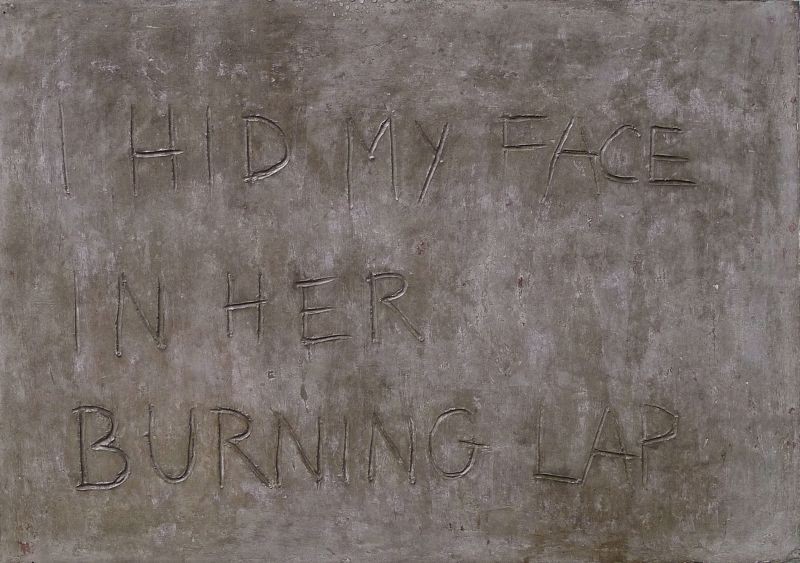 I HID MY FACE
IN HER
BURNING LAP